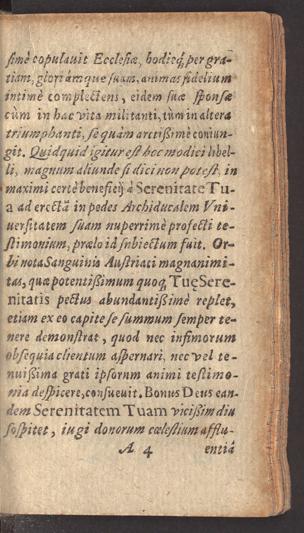 simè copulauit Ecclesiæ, hodieq́; per gra-
tiam, gloriámque suam, animas fidelium
intimè complectens, eidem suæ sponsæ
cùm in hac vita militanti, tùm in altera
triumphanti, sê quàm arctißimè coniun-
git. Quidquid igitur est hoc modici libel-
li, magnum aliunde si dici non potest, in
maximi certè beneficij à Serenitate Tu-
a ad erectã in pedes Archiducalem Vni-
uersitatem suam nuperrimè profecti te-
stimonium, prælo id subiectum fuit. Or-
bi nota Sanguinis Austriaci magnanimi-
tas, quæ potentißimum quoq; Tuę Sere-
nitatis pectus abundantißimè replet,
etiam ex eo capite se summum semper te-
nere demonstrat, quod nec infimorum
obsequia clientum aspernari, nec vel te-
nuißima grati ipsorum animi testimo-
nia despicere, consueuit. Bonus Deus ean-
dem Serenitatem Tuam vicißim diu
sospitet, iugi donorum cœlestium afflu-
A 4 entiâ